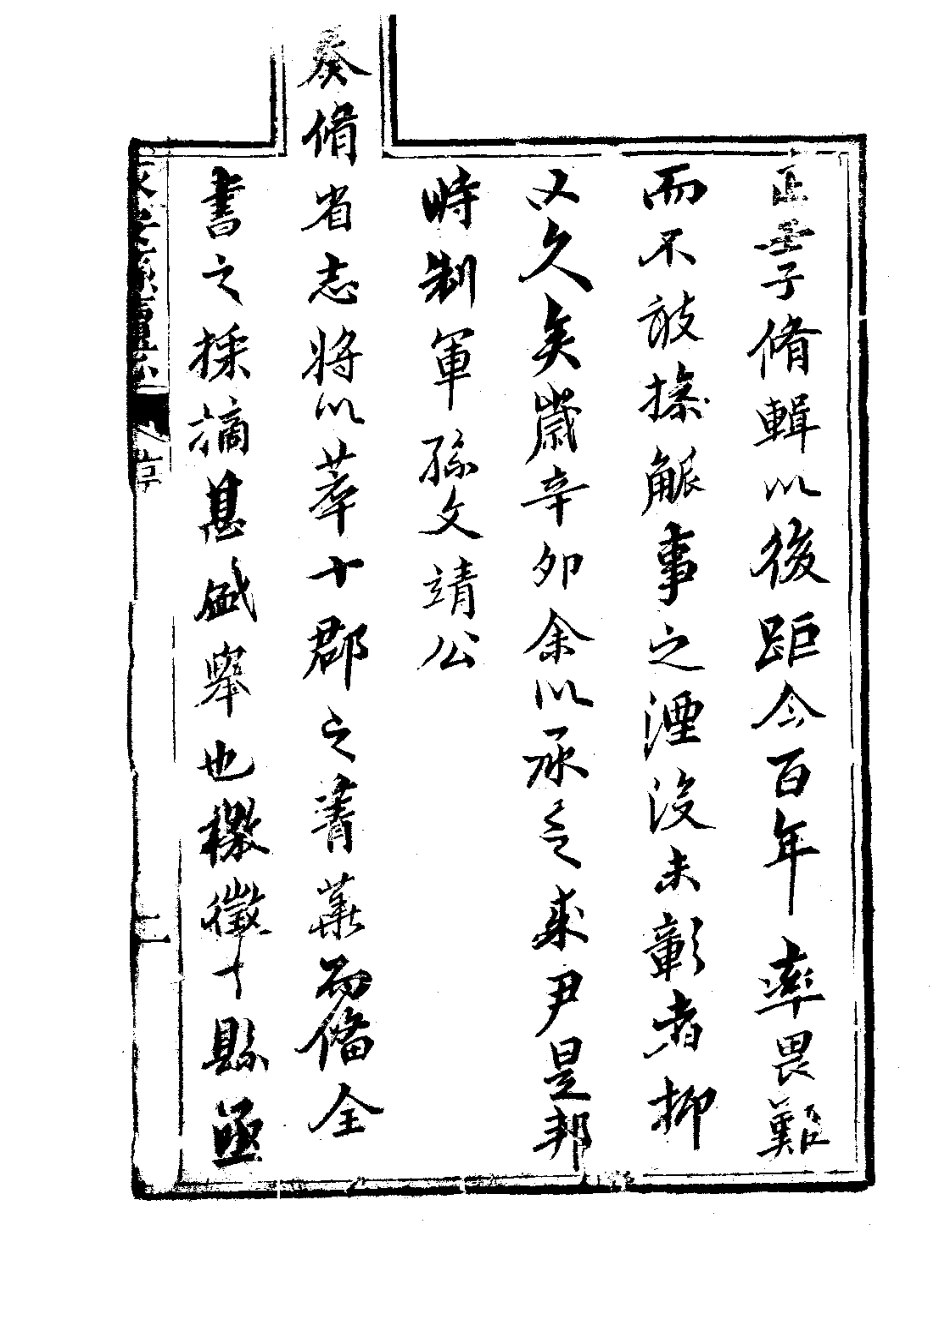 正學子脩輯以後距今百年率畏難
而不敢操觚事之湮沒未彰者抑
又久矣歲辛卯余以承乏來尹是邦
時制軍孫文靖公
奏脩省志將以萃十郡之菁華而備全
書之採摘甚盛舉也檄徵十縣亟
安縣續志
序
二